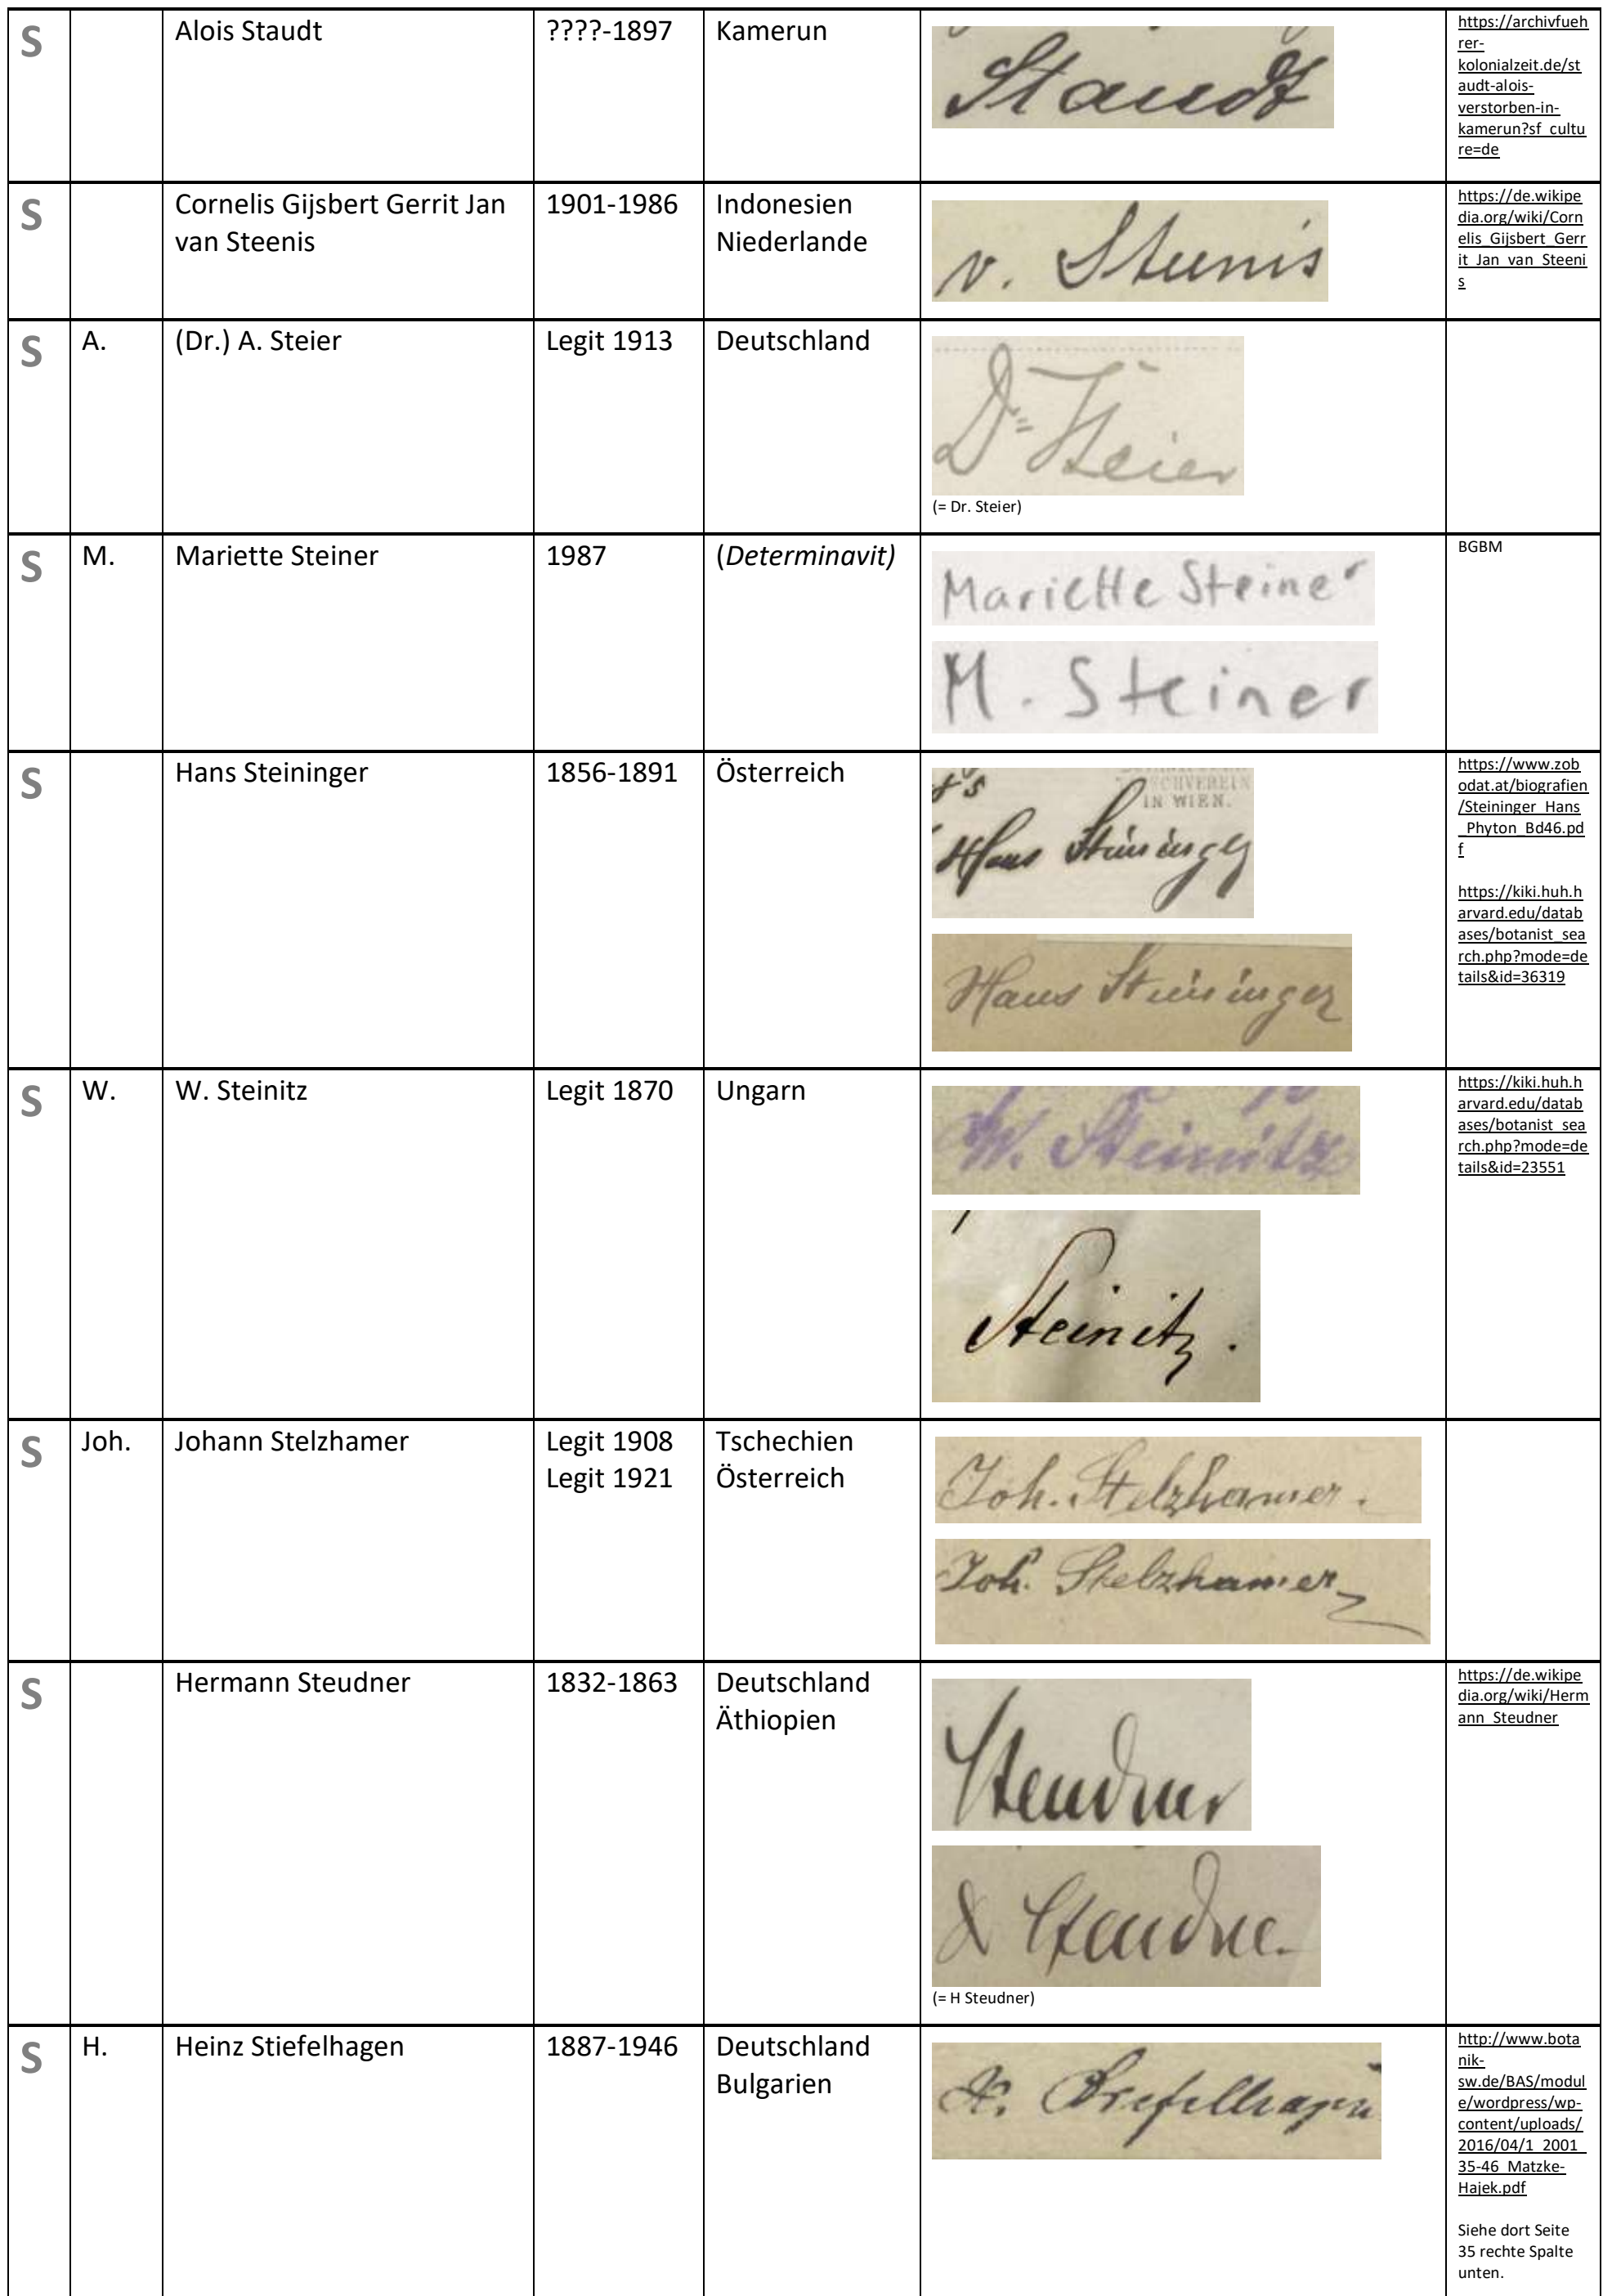 S
Alois Staudt
????-1897
Kamerun
Staudt
https://archivfueh
rer-
kolonialzeit.de/st
audt-alois-
verstorben-in-
kamerun?sf_cultu
re=de
S
Cornelis Gijsbert Gerrit Jan
van Steenis
1901-1986
Indonesien
Niederlande
v. Steenis
https://de.wikipe
dia.org/wiki/Corn
elis_Gijsbert_Gerr
it_Jan_van_Steeni
s
S
A.
(Dr.) A. Steier
Legit 1913
Deutschland
Dr Steier
(= Dr. Steier)
S
M.
Mariette Steiner
1987
(Determinavit)
Mariette Steiner
M. Steiner
BGBM
S
Hans Steininger
1856-1891
Österreich
IN WIEN.
Hans Steininger
Hans Steininger
https://www.zob
odat.at/biografien
/Steininger_Hans
_Phyton_Bd46.pd
f
https://kiki.huh.h
arvard.edu/datab
ases/botanist_sea
rch.php?mode=de
tails&id=36319
S
W.
W. Steinitz
Legit 1870
Ungarn
W. Steinitz
Steinitz.
https://kiki.huh.h
arvard.edu/datab
ases/botanist_sea
rch.php?mode=de
tails&id=23551
S
Joh.
Johann Stelzhamer
Legit 1908
Legit 1921
Tschechien
Österreich
Joh. Stelzhamer.
Joh. Stelzhamer
S
Hermann Steudner
1832-1863
Deutschland
Äthiopien
Steudner
H Steudner
(= H Steudner)
https://de.wikipe
dia.org/wiki/Herm
ann_Steudner
S
H.
Heinz Stiefelhagen
1887-1946
Deutschland
Bulgarien
H. Stiefelhagen
http://www.bota
nik-
sw.de/BAS/modul
e/wordpress/wp-
content/uploads/
2016/04/1_2001_
35-46_Matzke-
Hajek.pdf
Siehe dort Seite
35 rechte Spalte
unten.